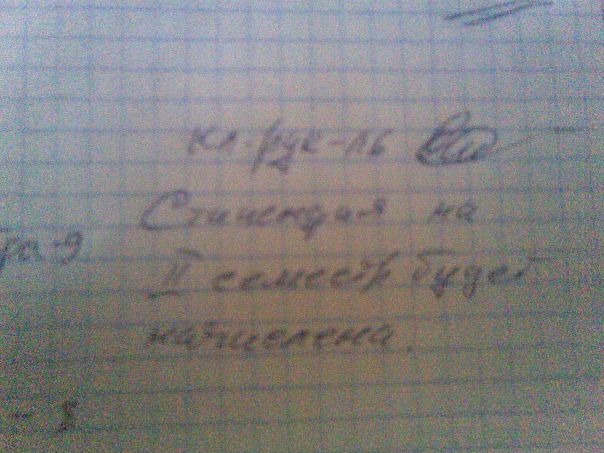 кл. рук-ль
Стипендия на
ра-9
II семестр будет
начислена.
- 8